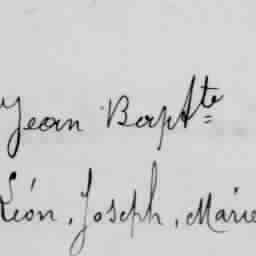 Jean Bapte
Léon, Joseph, Marie